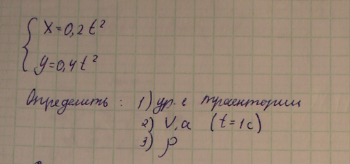 x=0,2t²
y=0,4t²
Определить: 1) ур. е траектории
2) V, a (t=1c)
3) ρ